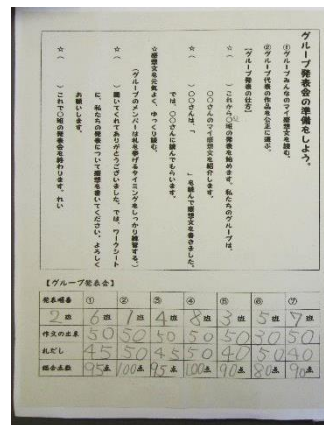 グループ発表会の準備をしよう。
①グループみんなのマイ感想文を読む。
②グループ代表の作品を公正に選ぶ。
【グループ発表の仕方】
☆（　　）これから〇班の発表を始めます。私たちのグループは、
〇〇さんのマイ感想文を紹介します。
☆（　　）〇〇さんは、「　　　　」を読んで感想文を書きました。
では、〇〇さんに読んでもらいます。
☆感想文を元気よく、ゆっくり読む。
（グループのメンバーは札を挙げるタイミングをしっかり練習する。）
☆（　　）聞いてくれてありがとうございました。では、ワークシート
に、私たちの発表について感想を書いてください。よろしく
お願いします。
☆（　　）これで〇班の発表会を終わります。れい
【グループ発表会】
発表順番 ① ② ③ ④ ⑤ ⑥ ⑦
2班 6班 1班 4班 8班 3班 5班 7班
作文の出来 50 50 50 50 50 30 50
札だし 45 50 45 50 40 50 40
総合点数 95点 100点 95点 100点 90点 80点 90点